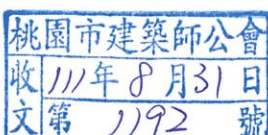 桃園市建築師公會
收111年8月31日
文第1192號